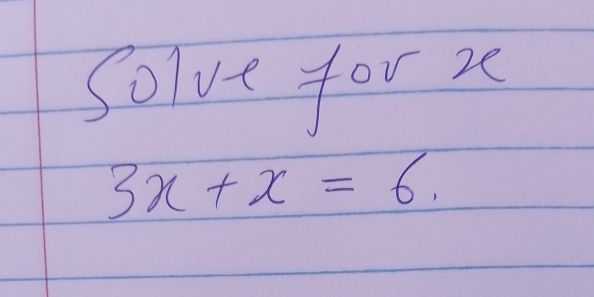 Solve for x
3x + x = 6.